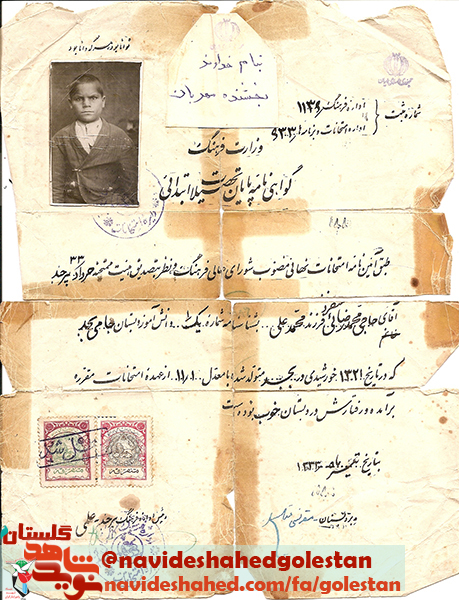 توانا بود هر که دانا بود
بنام خداوند
بخشنده مهربان
شماره ثبت
اداره فرهنگ ۱۱۳۹
اداره امتحانات و برنامه
وزارت فرهنگ
گواهی نامه پایان تحصیلات ابتدائی
طبق آئین نامه امتحانات نهائی مصوب شورای عالی فرهنگ و نظر بتصدیق هیئت ممتحنه خرداد ۳۳ بیرجند
آقای حاجی محمد رضائی فرزند محمد علی بشناسنامه شماره یک دانش آموز دبستان
خانم
که در تاریخ ۱۳۲۱ خورشیدی در متولد شده با معدل ۱۱/۰۱ از عهده امتحانات مقرره
برآمده و رفتارش در دبستان خوب بوده است
بتاریخ ۱۳۳۳
مدیر دبستان
رئیس اداره فرهنگ بیرجند
گلستان
نوید شاهد
@navideshahedgolestan
navideshahed.com/fa/golestan